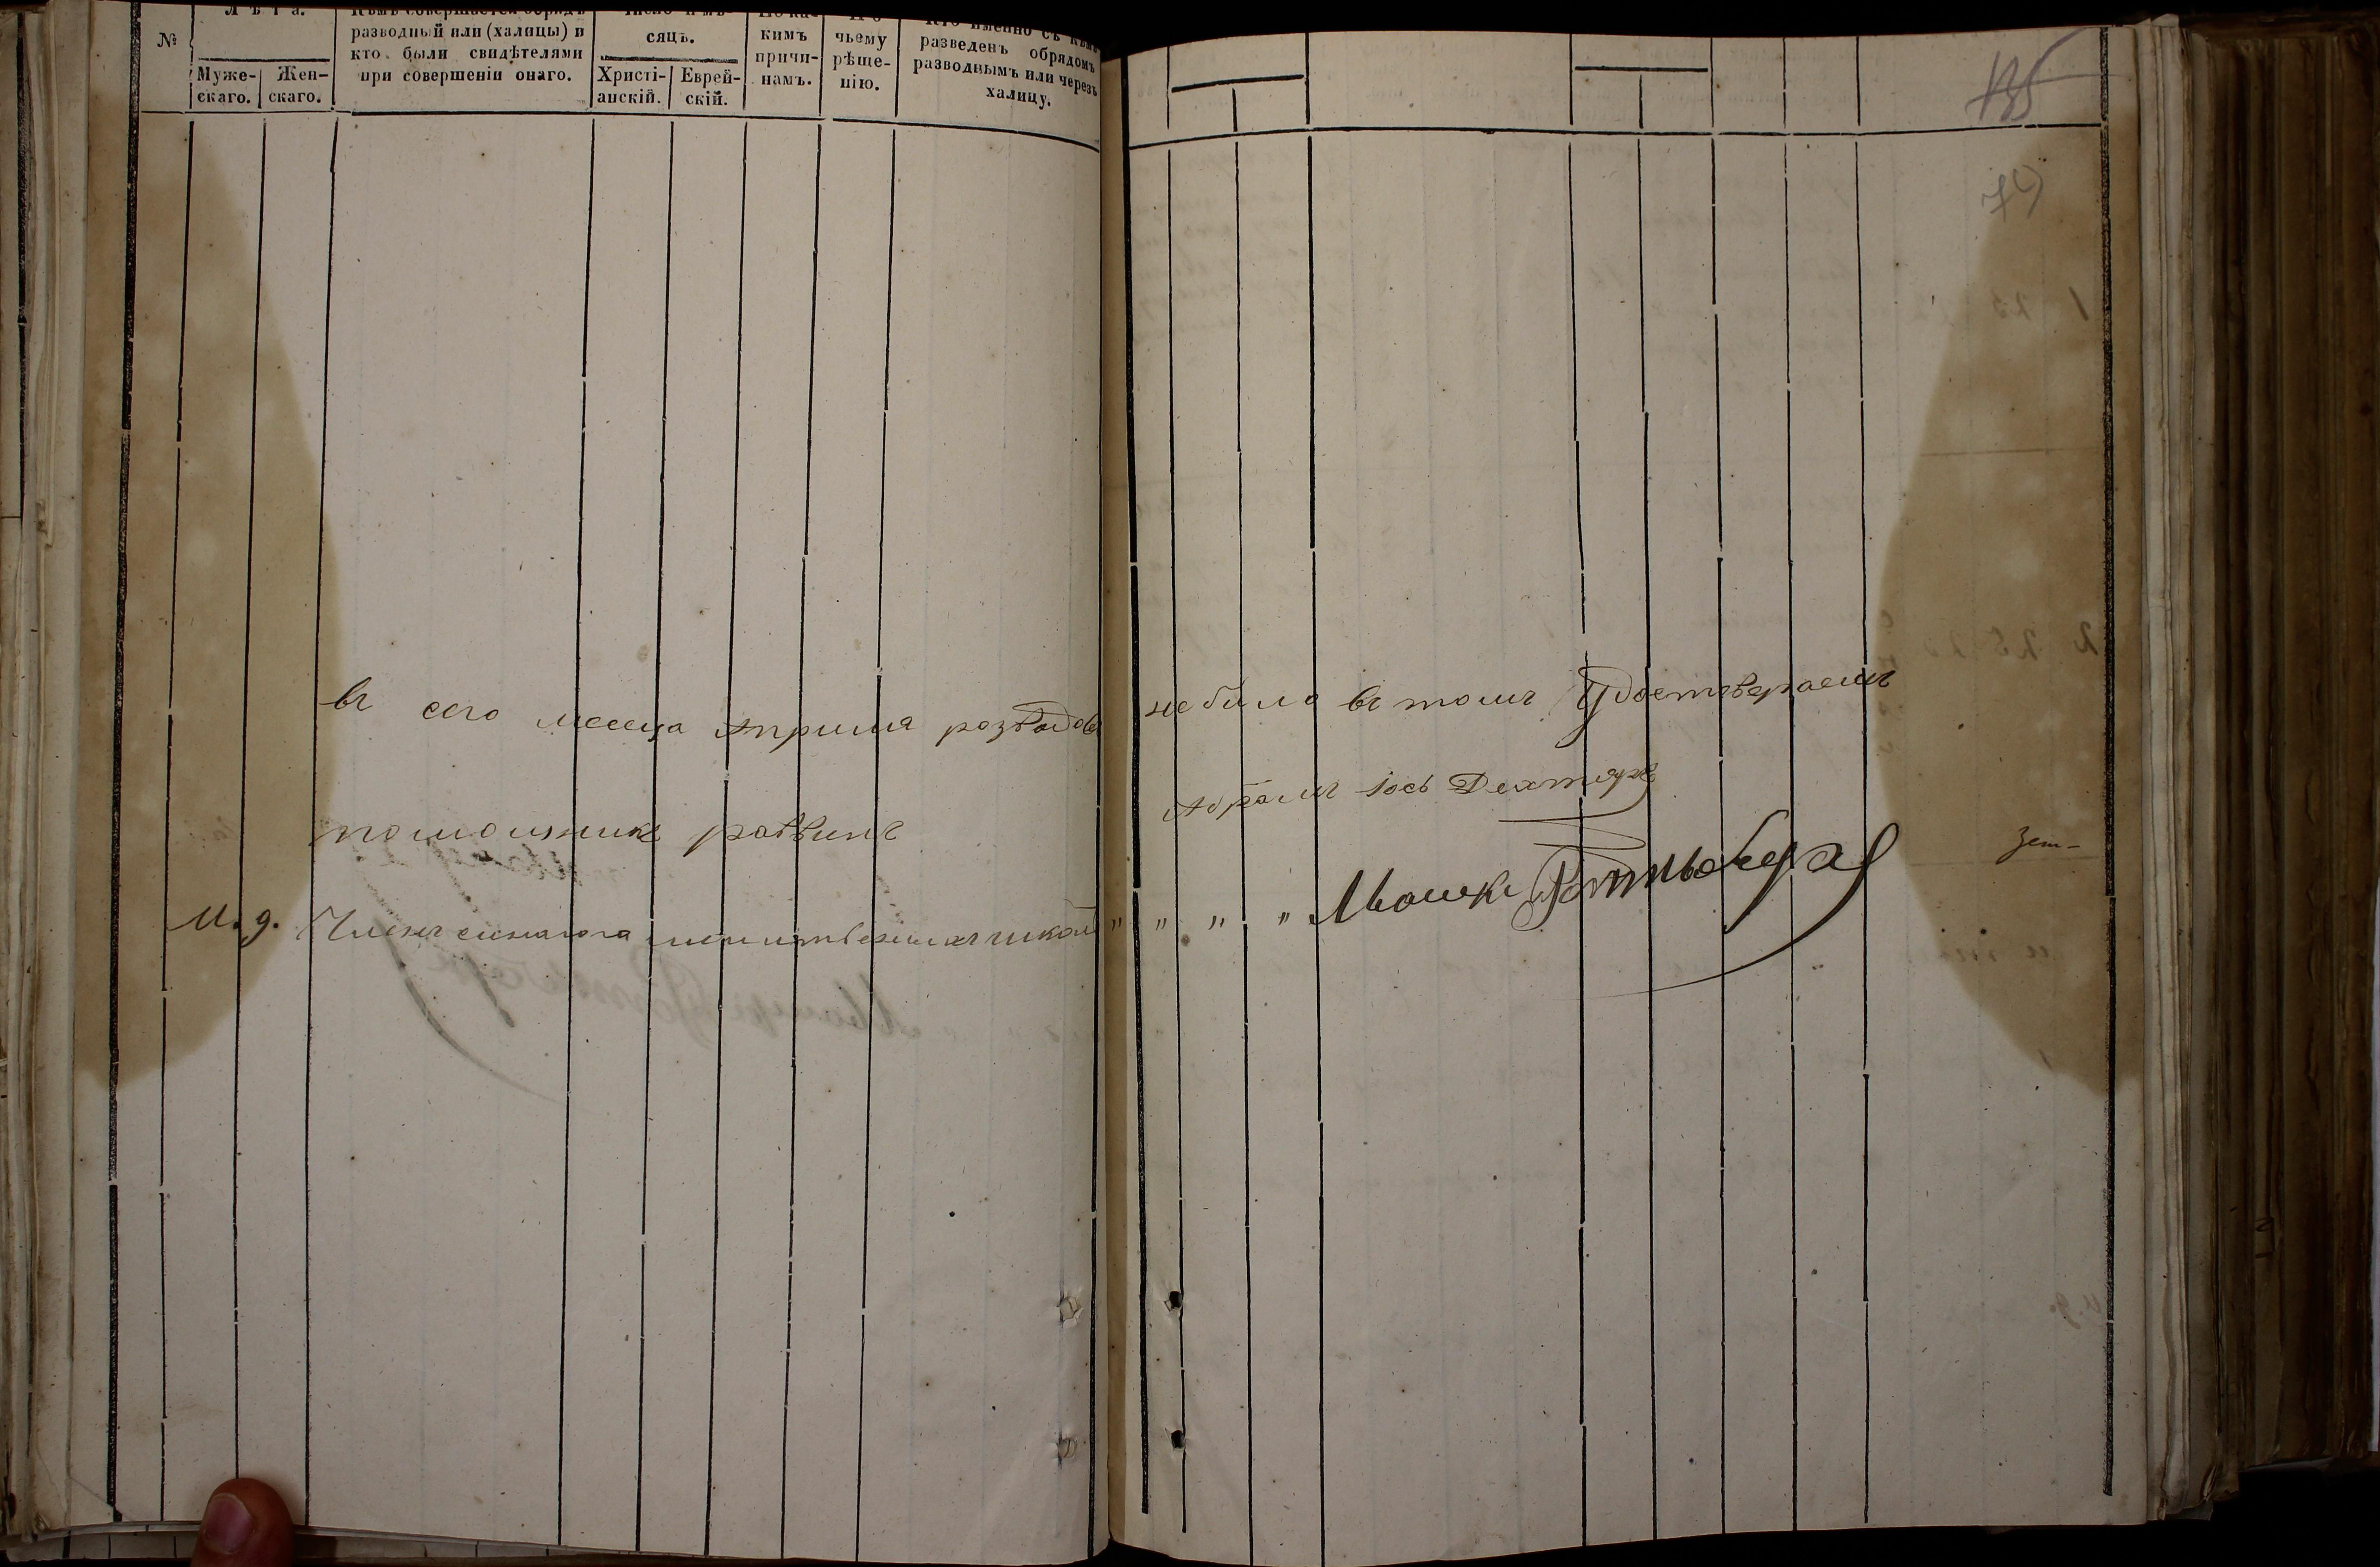 №
Лѣта.
Муже-
скаго.
Жен-
скаго.
Кѣмъ совершается обрядъ
разводный или (халицы) и
кто были свидѣтелями
при совершеніи онаго.
Число и мѣ-
сяцъ.
Христі-
анскій.
Еврей-
скій.
По ка-
кимъ
причи-
намъ.
По
чьему
рѣше-
нію.
Кто именно съ кѣмъ
разведенъ обрядомъ
разводнымъ или черезъ
халицу.
въ сего месеца априля розводовъ не било въ томъ удостверяемъ
помощникъ раввинъ Абрамъ Іось Дехтяръ
И. д. Членъ синагога " " " " Мошко